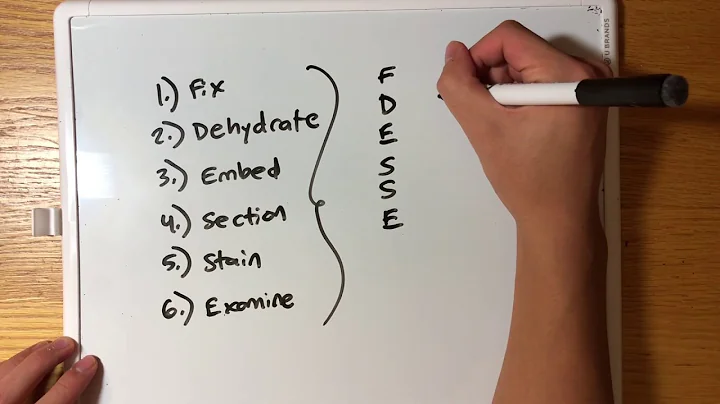 1.) Fix
2.) Dehydrate
3.) Embed
4.) Section
5.) Stain
6.) Examine
F
D
E
S
S
E
U BRANDS